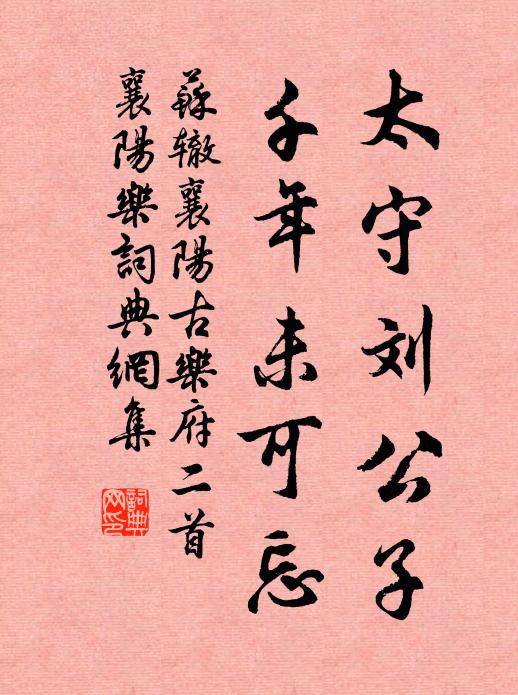 太守刘公子
千年未可忘
蘇辙襄陽古樂府二首
襄陽樂詞典網集
詞典网印